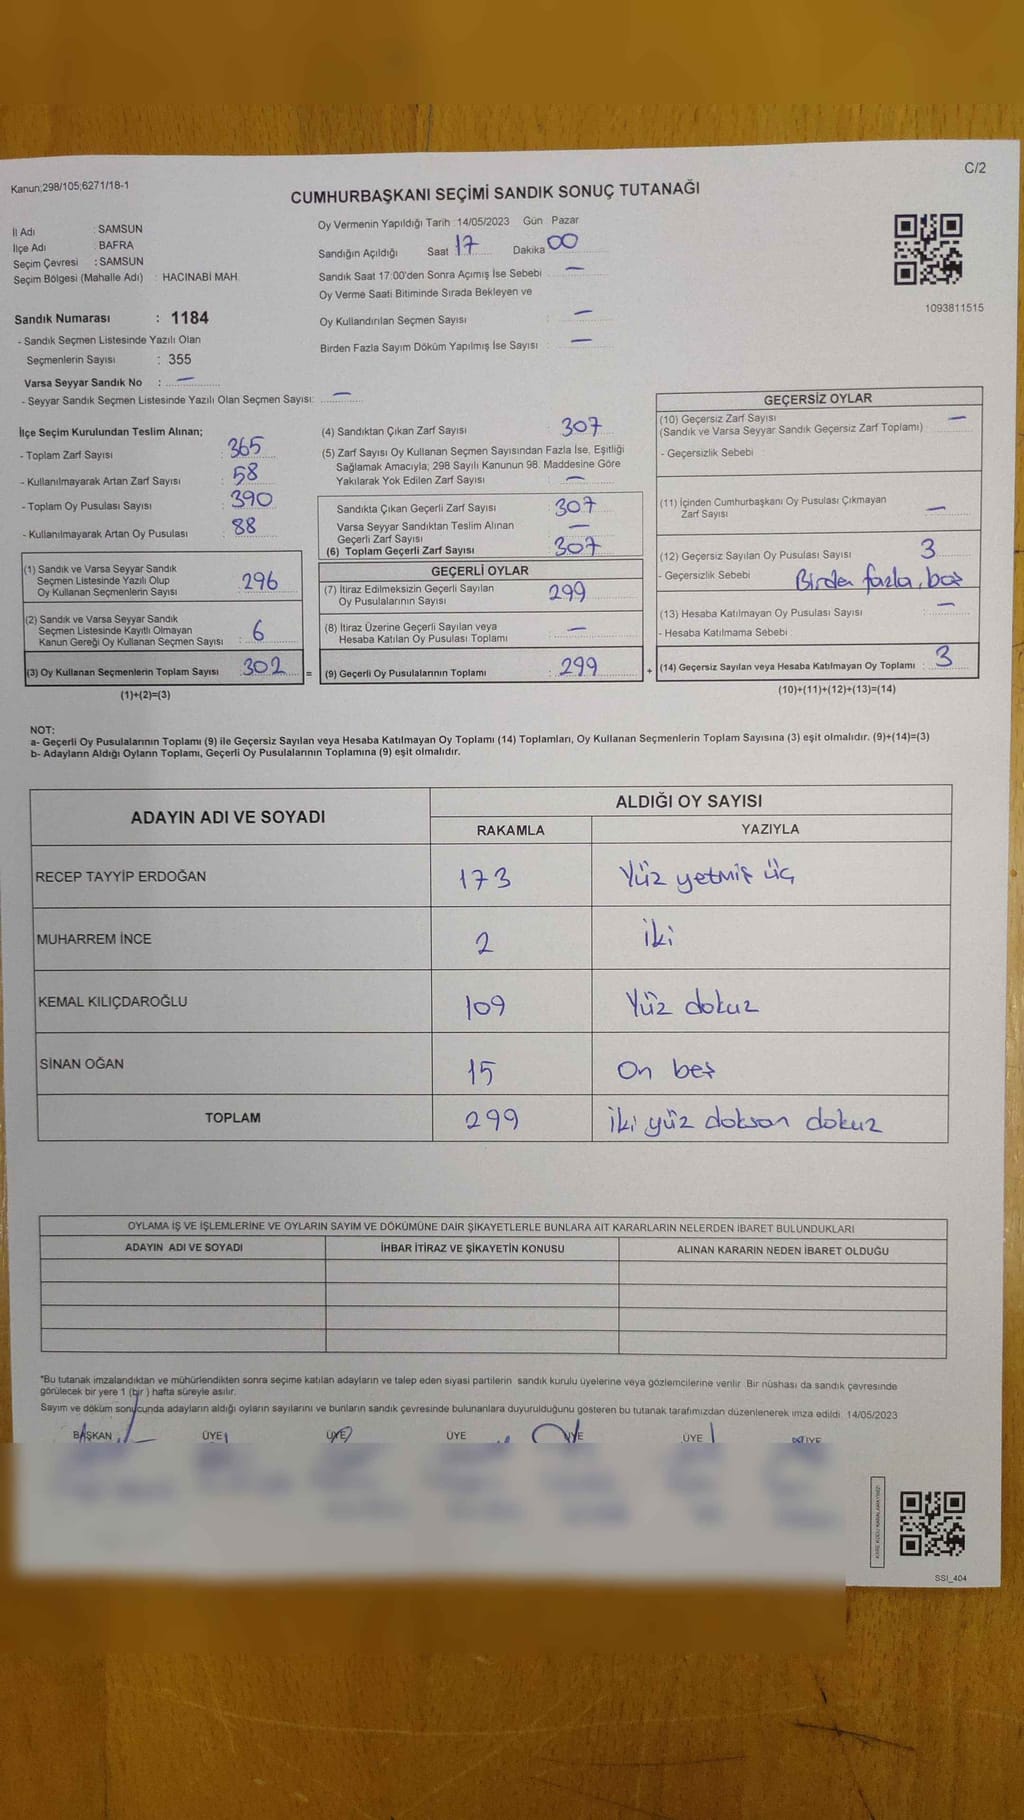 Kanun;298/105;6271/18-1
C/2
CUMHURBAŞKANI SEÇİMİ SANDIK SONUÇ TUTANAĞI
İl Adı : SAMSUN
İlçe Adı : BAFRA
Seçim Çevresi : SAMSUN
Seçim Bölgesi (Mahalle Adı) : HACINABİ MAH.
Sandık Numarası : 1184
- Sandık Seçmen Listesinde Yazılı Olan
Seçmenlerin Sayısı : 355
Varsa Seyyar Sandık No : —
- Seyyar Sandık Seçmen Listesinde Yazılı Olan Seçmen Sayısı: —
Oy Vermenin Yapıldığı Tarih : 14/05/2023 Gün Pazar
Sandığın Açıldığı Saat 17 Dakika 00
Sandık Saat 17:00'den Sonra Açımış İse Sebebi —
Oy Verme Saati Bitiminde Sırada Bekleyen ve
Oy Kullandırılan Seçmen Sayısı : —
Birden Fazla Sayım Döküm Yapılmış İse Sayısı : —
1093811515
İlçe Seçim Kurulundan Teslim Alınan;
- Toplam Zarf Sayısı : 365
- Kullanılmayarak Artan Zarf Sayısı : 58
- Toplam Oy Pusulası Sayısı : 390
- Kullanılmayarak Artan Oy Pusulası : 88
(1) Sandık ve Varsa Seyyar Sandık
Seçmen Listesinde Yazılı Olup
Oy Kullanan Seçmenlerin Sayısı : 296
(2) Sandık ve Varsa Seyyar Sandık
Seçmen Listesinde Kayıtlı Olmayan
Kanun Gereği Oy Kullanan Seçmen Sayısı : 6
(3) Oy Kullanan Seçmenlerin Toplam Sayısı : 302 =
(1)+(2)=(3)
(4) Sandıktan Çıkan Zarf Sayısı : 307
(5) Zarf Sayısı Oy Kullanan Seçmen Sayısından Fazla İse, Eşitliği
Sağlamak Amacıyla; 298 Sayılı Kanunun 98. Maddesine Göre
Yakılarak Yok Edilen Zarf Sayısı : —
Sandıkta Çıkan Geçerli Zarf Sayısı : 307
Varsa Seyyar Sandıktan Teslim Alınan
Geçerli Zarf Sayısı : —
(6) Toplam Geçerli Zarf Sayısı : 307
GEÇERLİ OYLAR
(7) İtiraz Edilmeksizin Geçerli Sayılan
Oy Pusulalarının Sayısı : 299
(8) İtiraz Üzerine Geçerli Sayılan veya
Hesaba Katılan Oy Pusulası Toplamı : —
(9) Geçerli Oy Pusulalarının Toplamı : 299 +
GEÇERSİZ OYLAR
(10) Geçersiz Zarf Sayısı : —
(Sandık ve Varsa Seyyar Sandık Geçersiz Zarf Toplamı)
- Geçersizlik Sebebi :
(11) İçinden Cumhurbaşkanı Oy Pusulası Çıkmayan
Zarf Sayısı : —
(12) Geçersiz Sayılan Oy Pusulası Sayısı : 3
- Geçersizlik Sebebi : Birden fazla, boş
(13) Hesaba Katılmayan Oy Pusulası Sayısı : —
- Hesaba Katılmama Sebebi :
(14) Geçersiz Sayılan veya Hesaba Katılmayan Oy Toplamı : 3
(10)+(11)+(12)+(13)=(14)
NOT:
a- Geçerli Oy Pusulalarının Toplamı (9) ile Geçersiz Sayılan veya Hesaba Katılmayan Oy Toplamı (14) Toplamları, Oy Kullanan Seçmenlerin Toplam Sayısına (3) eşit olmalıdır. (9)+(14)=(3)
b- Adayların Aldığı Oyların Toplamı, Geçerli Oy Pusulalarının Toplamına (9) eşit olmalıdır.
ADAYIN ADI VE SOYADI ALDIĞI OY SAYISI
RAKAMLA YAZIYLA
RECEP TAYYİP ERDOĞAN 173 Yüz yetmiş üç
MUHARREM İNCE 2 iki
KEMAL KILIÇDAROĞLU 109 Yüz dokuz
SİNAN OĞAN 15 On beş
TOPLAM 299 iki yüz doksan dokuz
OYLAMA İŞ VE İŞLEMLERİNE VE OYLARIN SAYIM VE DÖKÜMÜNE DAİR ŞİKAYETLERLE BUNLARA AİT KARARLARIN NELERDEN İBARET BULUNDUKLARI
ADAYIN ADI VE SOYADI İHBAR İTİRAZ VE ŞİKAYETİN KONUSU ALINAN KARARIN NEDEN İBARET OLDUĞU
*Bu tutanak imzalandıktan ve mühürlendikten sonra seçime katılan adayların ve talep eden siyasi partilerin sandık kurulu üyelerine veya gözlemcilerine verilir. Bir nüshası da sandık çevresinde
görülecek bir yere 1 (bir ) hafta süreyle asılır.
Sayım ve döküm sonucunda adayların aldığı oyların sayılarını ve bunların sandık çevresinde bulunanlara duyurulduğunu gösteren bu tutanak tarafımızdan düzenlenerek imza edildi. 14/05/2023
BAŞKAN ÜYE ÜYE ÜYE ÜYE ÜYE ÜYE
SSI_404